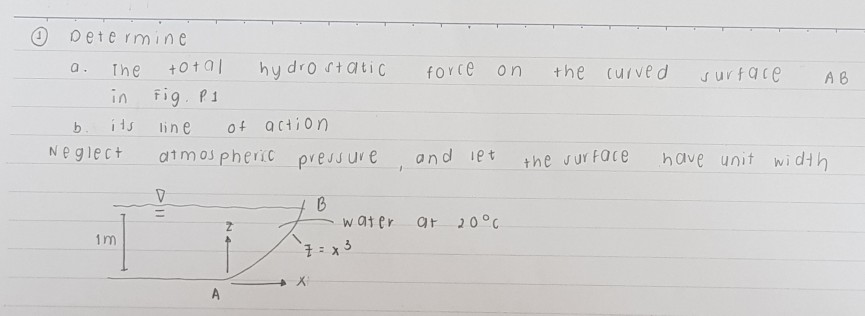 ① Determine
a. The total hydrostatic force on the curved surface AB
in Fig. P1
b. its line of action
Neglect atmospheric pressure, and let the surface have unit width
B
water at 20°C
z
1m
z = x³
x
A